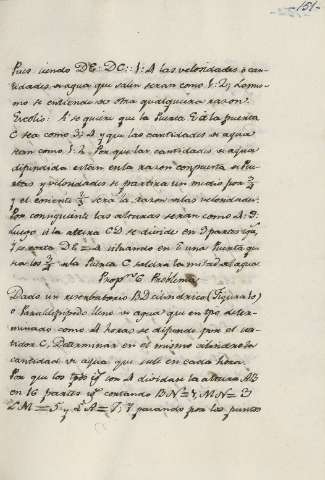 151
Pues siendo DE: DC:: 1: 4 las velosidades o can-
tidades de agua que salen seran como 1: 2; Lo mis-
mo se entiende de otra qualquiera razon.
Escolio: Si se quiere que la Puerta E a la puerta
C sea como 3; 2 y que las cantidades de agua
sean como 1: 2. Por que las cantidades de agua
difundida estan en la razon conpuesta de Puer-
tas y velosidades se partira un medio por 3/2
y el cociente 1/3 sera la razon de las velosidades.
Por consiguiente las alturas seran como 1: 9.
luego si la altura CD se divide en 9 partes iguales
y se corta DE = 1 situando en E una Puerta que
sea los 3/2 de la Puerta C saldra la mitad de agua
Prop.on 6 Problema
Dado un reserbatorio BD cilindrico (Figura 10)
o Paralelepipedo lleno de agua que en tpo deter-
minado como 4 horas se difunde por el ver-
tidor C, Determinar en el mismo cilindro la
cantidad de agua que sale en cada hora.
Por que los tpos son 4 dividase la altura AB
en 16 partes y contando BN = 1, MN = 3
LM = 5 y LA = 7, y pasando por los puntos